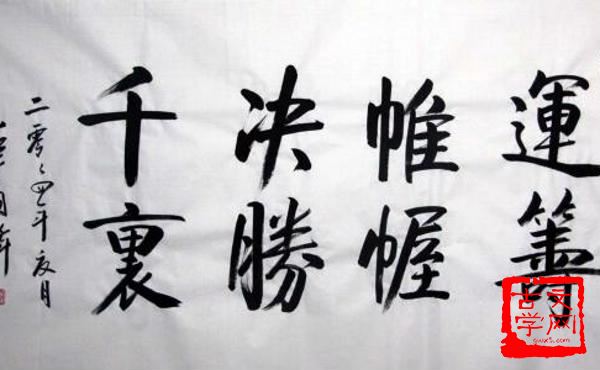 運籌
帷幄
决勝
千裏
二零零四年夏月
古文
学网
gwx5.com